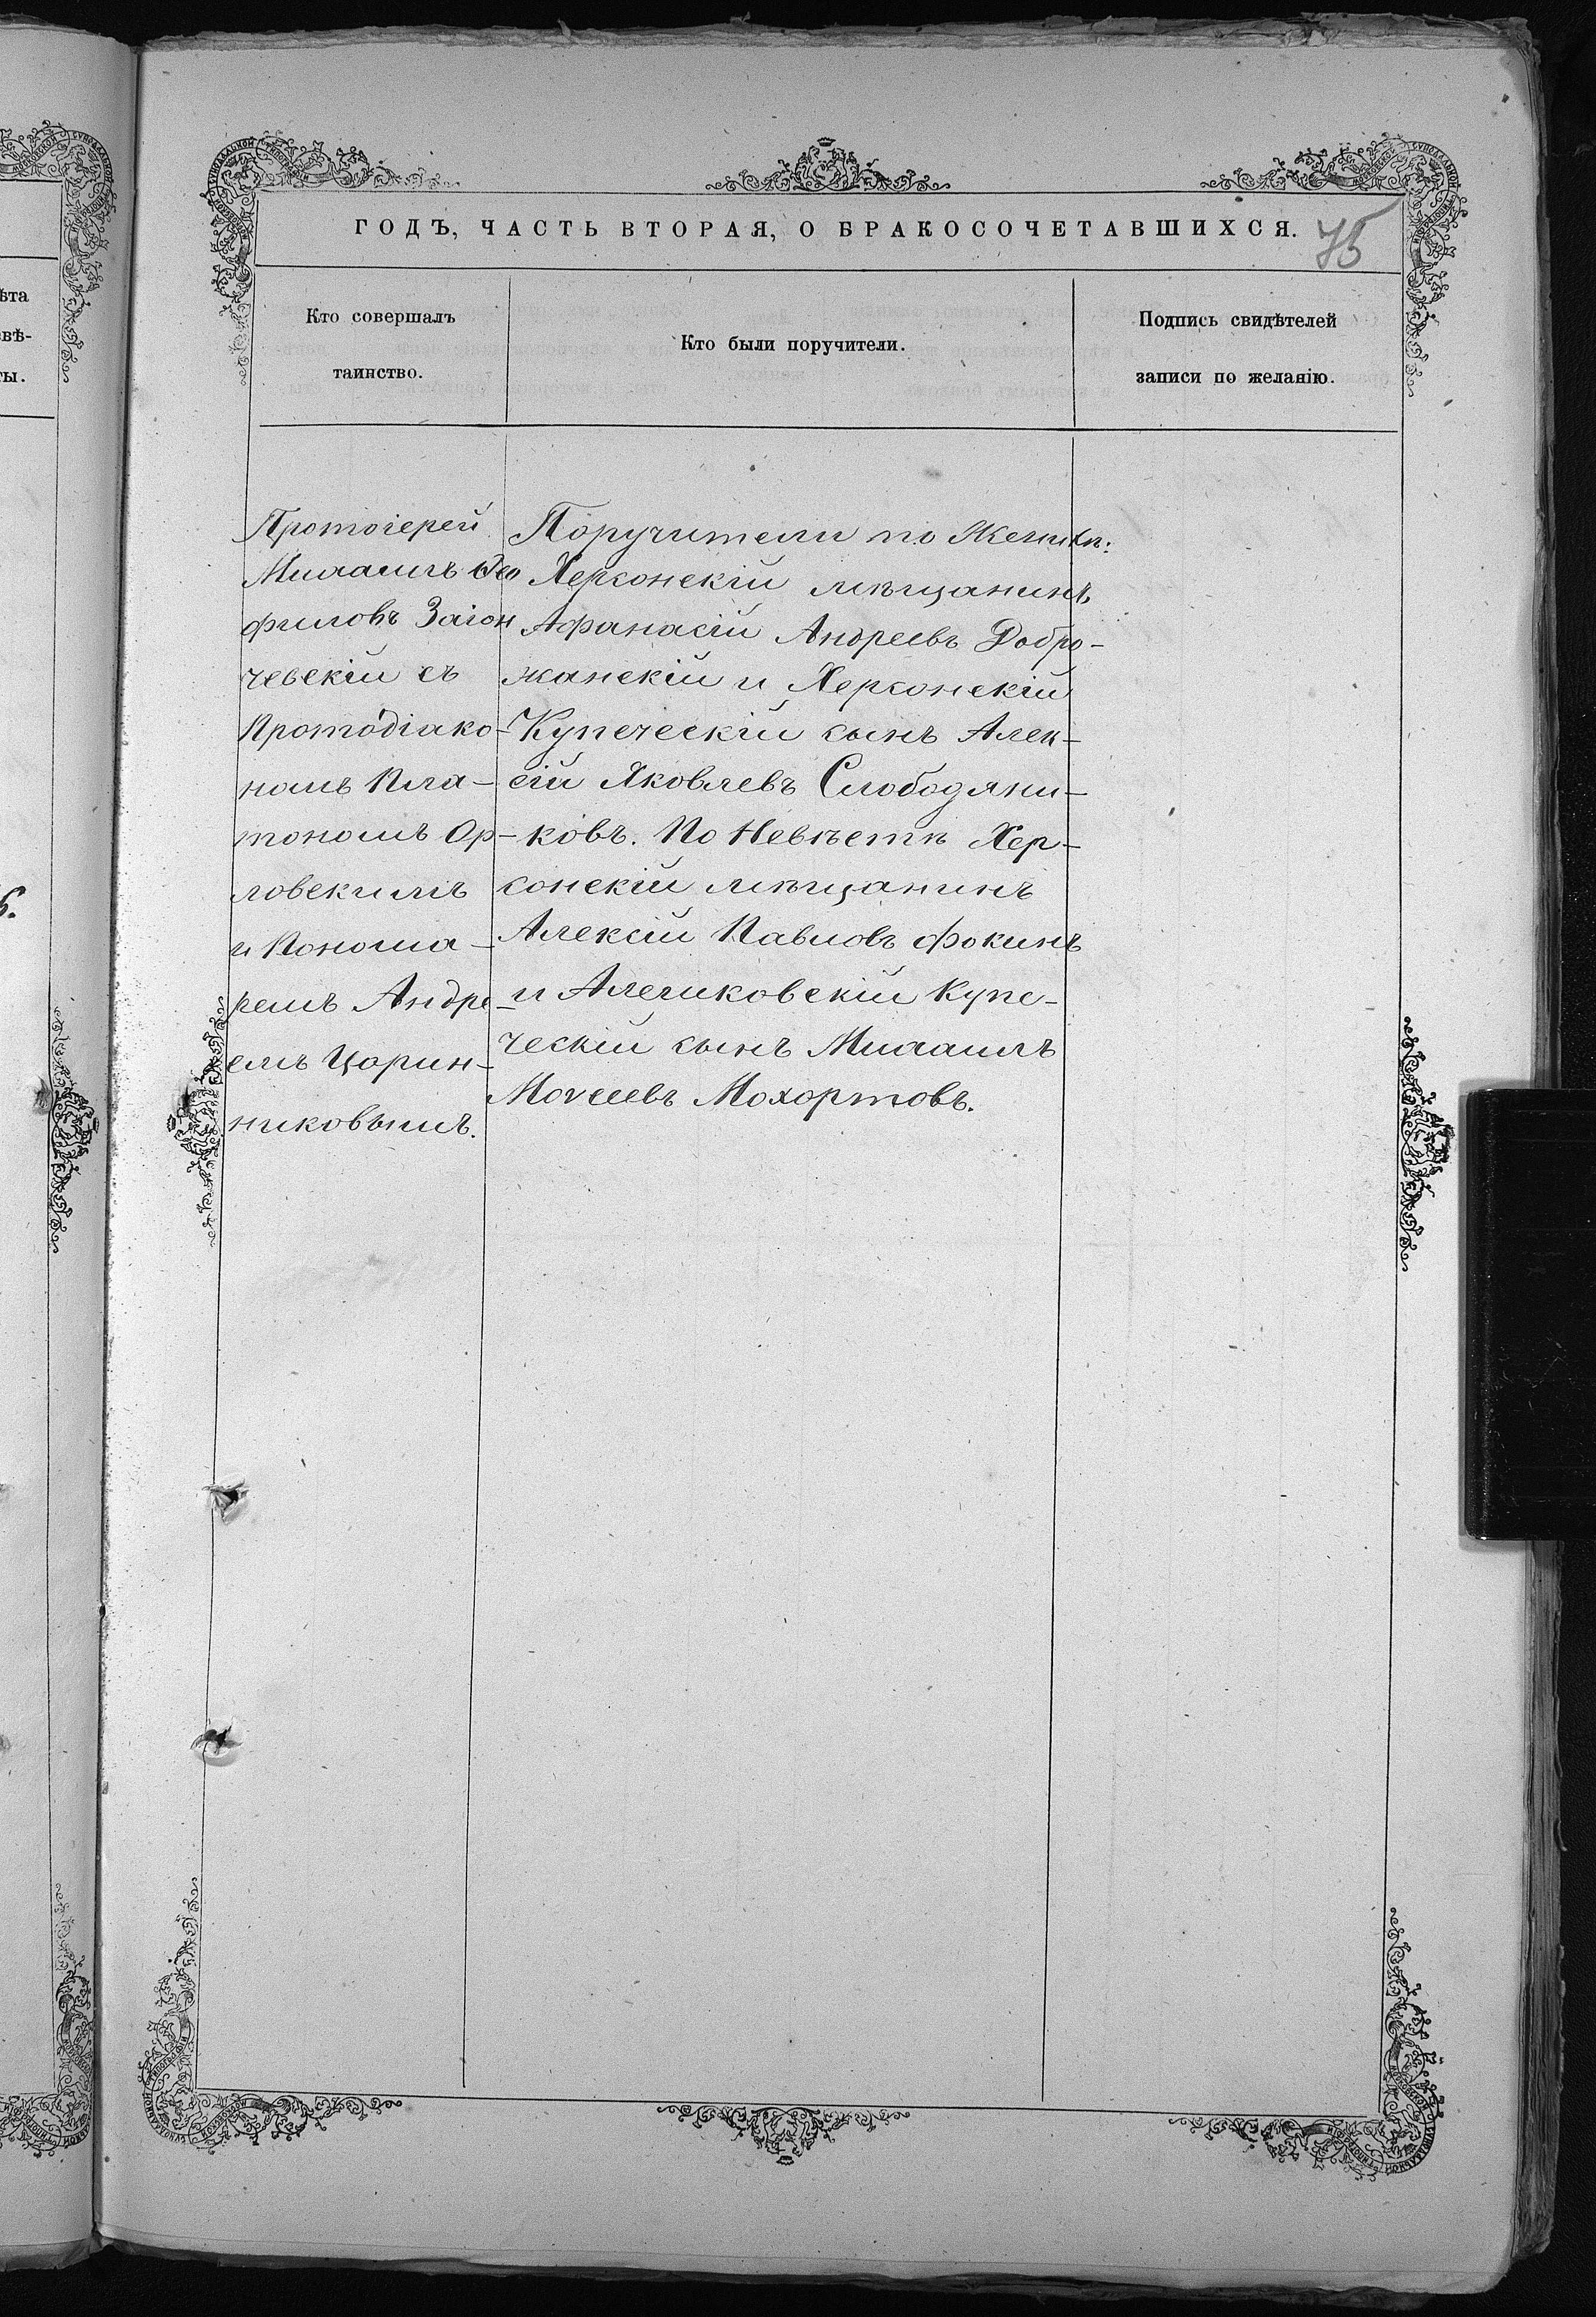 ГОДЪ, ЧАСТЬ ВТОРАЯ, О БРАКОСОЧЕТАВШИХСЯ.
75
Кто совершалъ
таинство.
Кто были поручители.
Подпись свидѣтелей
записи по желанію.
Протоіерей
Михаилъ Ѳео
филовъ Заіон
чевскій съ
Протодіако-
номъ Пла-
тономъ Ор-
ловскимъ
и Понома-
ремъ Андре-
емъ Царин-
никовымъ.
Поручители по Женихѣ:
Херсонскій мѣщанинъ
Афанасій Андреевъ Добро-
жанскій и Херсонскій
Купеческій сынъ Алек-
сій Яковлевъ Слободяни-
ковъ. По Невѣстѣ Хер-
сонскій мѣщанинъ
Алексій Павловъ Фокинъ
и Алешковскій Купе-
ческій сынъ Михаилъ
Моѵсеевъ Мохортовъ.
ѣта
вѣ-
ты.